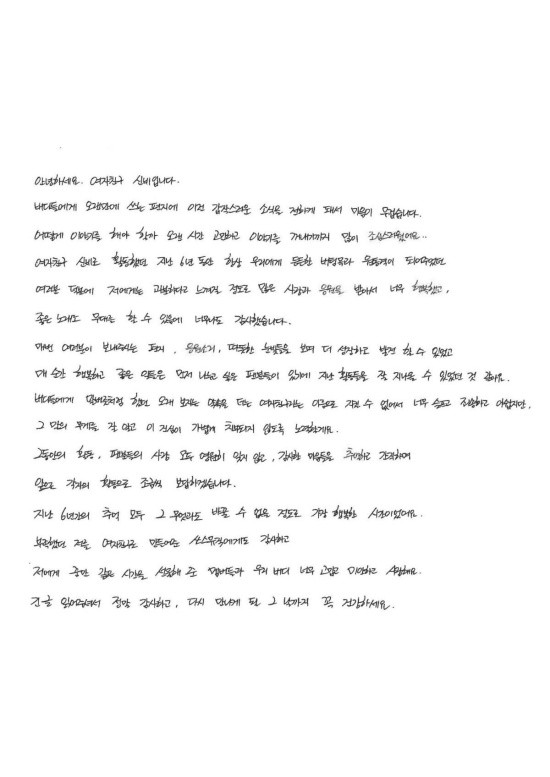 안녕하세요. 여자친구 신비입니다.
버디들에게 오랜만에 쓰는 편지에 이런 갑작스러운 소식을 전하게 돼서 마음이 무겁습니다.
어떻게 이야기를 해야 할까 오랜 시간 고민하고 이야기를 꺼내기까지 많이 조심스러웠어요..
여자친구 신비로 활동했던 지난 6년 동안 항상 우리에게 든든한 버팀목과 원동력이 되어주었던
여러분 덕분에 저에게는 과분하다고 느껴질 정도로 많은 사랑과 응원을 받아서 너무 행복했고,
좋은 노래로 무대를 할 수 있음에 너무나도 감사했습니다.
매번 여러분이 보내주시는 편지, 응원소리, 따뜻한 눈빛들을 보며 더 성장하고 발전 할 수 있었고
매 순간 행복하고 좋은 것들은 먼저 나누고 싶은 팬분들이 있기에 지난 활동들을 잘 지나올 수 있었던 것 같아요.
버디들에게 말버릇처럼 했던 오래 보자는 약속을 더는 여자친구라는 이름으로 지킬 수 없어서 너무 슬프고 죄송하고 아쉽지만,
그 말의 무게를 잘 알고 이 진심이 가볍게 치부되지 않도록 노력할게요.
그동안의 활동, 팬분들의 시간 모두 영원히 잊지 않고, 감사한 마음들을 추억하고 간직하며
앞으로 각자의 활동으로 조금씩 보답하겠습니다.
지난 6년간의 추억 모두 그 무엇과도 바꿀 수 없을 정도로 가장 행복한 시간이었어요.
부족했던 저를 여자친구로 만들어준 쏘스뮤직에게도 감사하고
저에게 꿈만 같은 시간을 선물해 준 멤버들과 우리 버디 너무 고맙고 미안하고 사랑해요.
긴 글 읽어주셔서 정말 감사하고, 다시 만나게 될 그 날까지 꼭 건강하세요.